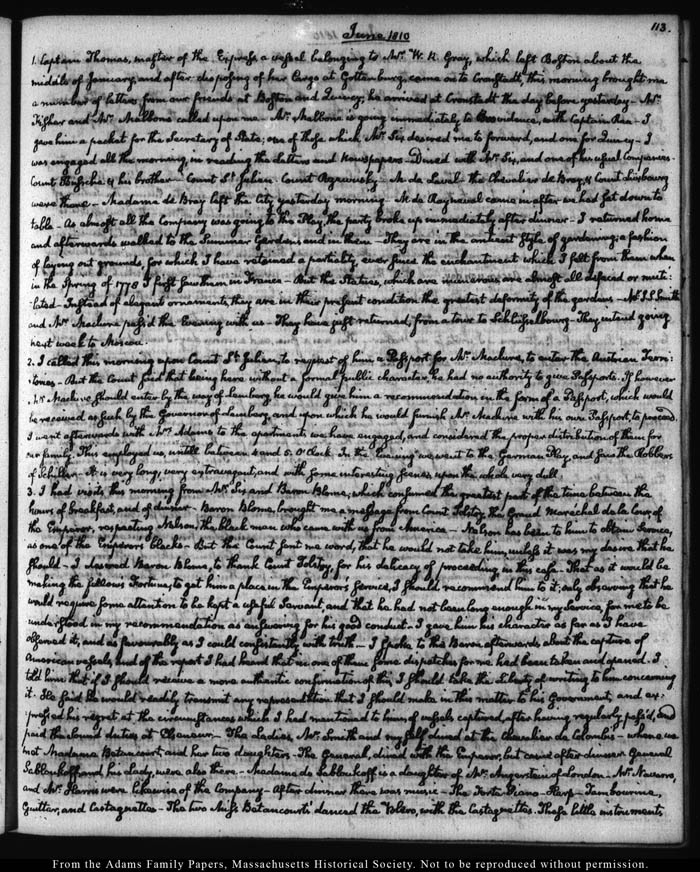 113.
June 1810
1. Captain Thomas, master of the Express a vessel belonging to Mr. W. R. Gray, which left Boston about the
middle of January, and after disposing of her Cargo at Gottenburg, came on to Cronstadt, this morning brought me
a number of letters from our friends at Boston and Quincy; he arrived at Cronstadt the day before yesterday — Mr.
Fisher and Mr. Mallbone called upon me — Mr. Mallbone is going immediately to Providence, with Captain Rea — I
gave him a packet for the Secretary of State; one of those which Mr. Six desired me to forward, and one for Quincy — I
was engaged all the morning, in reading the Letters and Newspapers — Dined with Mr. Six, and one of his usual Companies —
Count & his brother — Count St. Julien — Count — M. de Laval — the Chevalier de Bray, & Count Luxbourg
were there — Madame de Bray left the City yesterday morning — M. de Rayneval came in after we had sat down to
table — As almost all the Company was going to the Play, the party broke up immediately after dinner — I returned home
and afterwards walked to the Summer Gardens, and in them — They are in the antient style of gardening; a fashion
of laying out grounds, for which I have retained a partiality, ever since the enchantment which I felt from them when
in the Spring of 1778 I first saw them in France — But the Statues, which are numerous are almost all defaced or muti-
lated — Instead of elegant ornaments, they are in their present condition the greatest deformity of the gardens — Mr. J. S. Smith
and Mr. Maclure pass'd the Evening with us — They have just returned, from a tour to Schlüsselbourg — They intend going
next week to Moscow.
2. I called this morning upon Count St. Julien, to request of him a Passport for Mr. Maclure, to enter the Austrian Terri-
tories — But the Count said that being here without a formal public character, he had no authority to give Passports. If however
Mr. Maclure should enter by the way of Lemberg, he would give him a recommendation in the form of a Passport, which would
be received as such by the Governor of Lemberg, and upon which he would furnish Mr. Maclure with his own Passport, to proceed.
I went afterwards with Mrs. Adams to the apartments we have engaged, and considered the proper distribution of them for
our family. This employed us, until between 4 and 5. O'Clock. In the Evening we went to the German Play, and saw the Robbers
of Schiller — It is very long, very extravagant, and with some interesting scenes, upon the whole very dull.
3. I had visits this morning from Mr. Six and Baron Blome, which consumed the greatest part of the time between the
hours of breakfast, and of dinner — Baron Blome, brought me a message from Count Tolstoy, the Grand Maréchal de la Cour of
the Emperor, respecting Nelson, the black man who came with us from America — Nelson has been to him to obtain Service,
as one of the Emperor's blacks — But the Count sent me word, that he would not take him, unless it was my desire that he
should — I desired Baron Blome, to thank Count Tolstoy, for his delicacy of proceeding, in this case — That as it would be
making the fellow's Fortune, to get him a place in the Emperor's service, I should recommend him to it; only observing that he
would require some attention to be kept a useful Servant, and that he had not been long enough in my service, for me to be
understood in my recommendation as answering for his good conduct — I gave him his character as far as I have
observed it, and as favourably as I could consistently with truth — I spoke to the Baron afterwards about the capture of
American vessels, and of the report I had heard that in one of them some dispatches for me had been taken and opened. I
told him that if I should receive a more authentic confirmation of this, I should take the Liberty of writing to him concerning
it. He said he would readily transmit any representation that I should make in this matter to his Government, and ex-
pressed his regret at the circumstances which I had mentioned to him of vessels captured, after having regularly pass'd, and
paid the Sound duties at Elsineur — The Ladies, Mr. Smith and myself dined at the Chevalier de Colombi's — where we
met Madame Betancourt, and her two daughters — The General, dined with the Emperor, but came after dinner — General
Sabloukoff and his lady, were also there — Madame de Sabloukoff is a daughter of Mr. Angerstein of London — Mr. Navarro,
and Mr. Harris were likewise of the Company — After dinner there was music — The Forte Piano — Harp — Tambourine,
Guittar, and Castagnettes — The two Miss Betancourts danced the Volero, with the Castagnettes. These little instruments
From the Adams Family Papers, Massachusetts Historical Society. Not to be reproduced without permission.